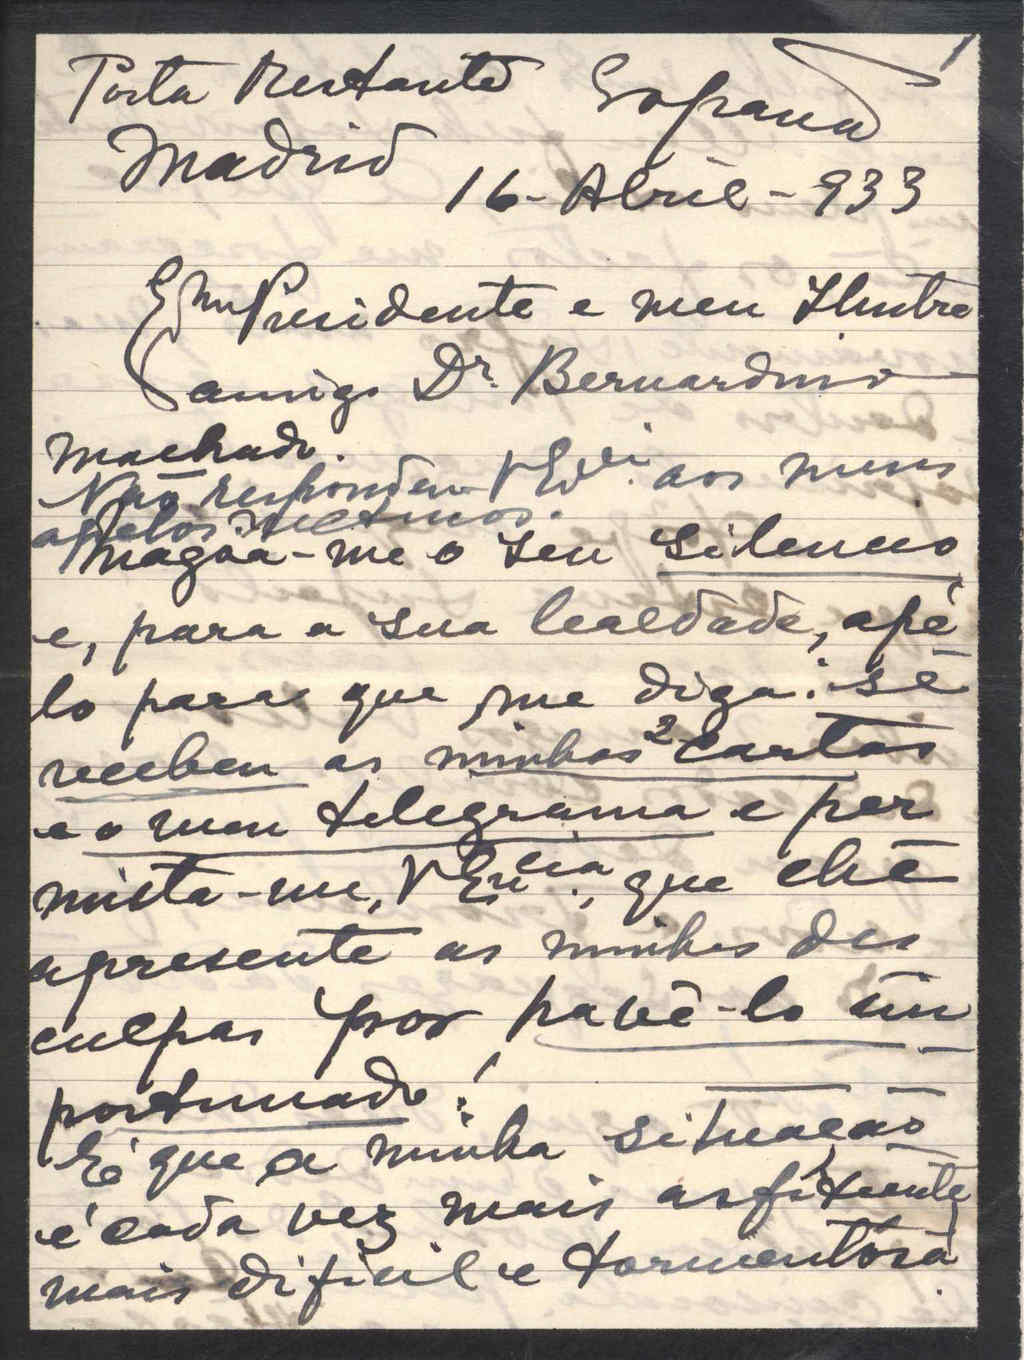 1
Posta Restante Espana
Madrid
16-Abril-933
Exmo Presidente e meu Ilustre
amigo Dr. Bernardino
Machado.
Não respondeu V Excia. aos meus
apelos ultimos.
Magoa-me o seu silencio
e, para a sua lealdade, apé
lo para que me diga: se
recebeu as minhas 2 cartas
e o meu telegrama e per
mita-me, V Excia., que lhe
apresente as minhas des
culpas por havê-lo im
portunado!
É que a minha situação
é cada vez mais asfixiante,
mais dificil e tormentosa.